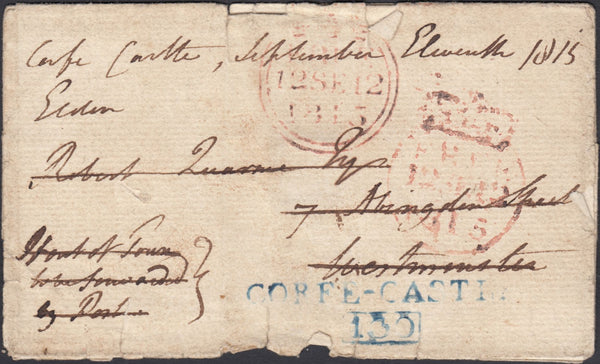 Corfe Castle, September Eleventh 1815
Eldon
Robert Quarme Esqr
7 Abingdon Street
Westminster
If out of Town
to be forwarded
by Post
12SE12
1815
CORFE-CASTLE
135